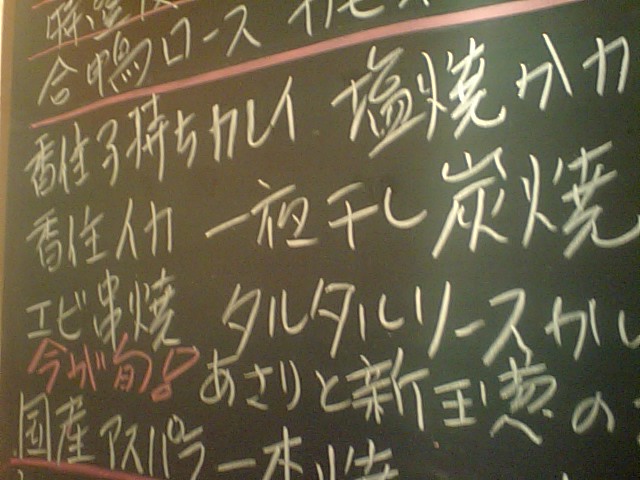 合鴨ロース
香住子持ちカレイ 塩焼 か
香住イカ 一夜干し 炭焼
エビ串焼 タルタルソース
今が旬! あさりと新玉葱の
国産アスパラ一本焼